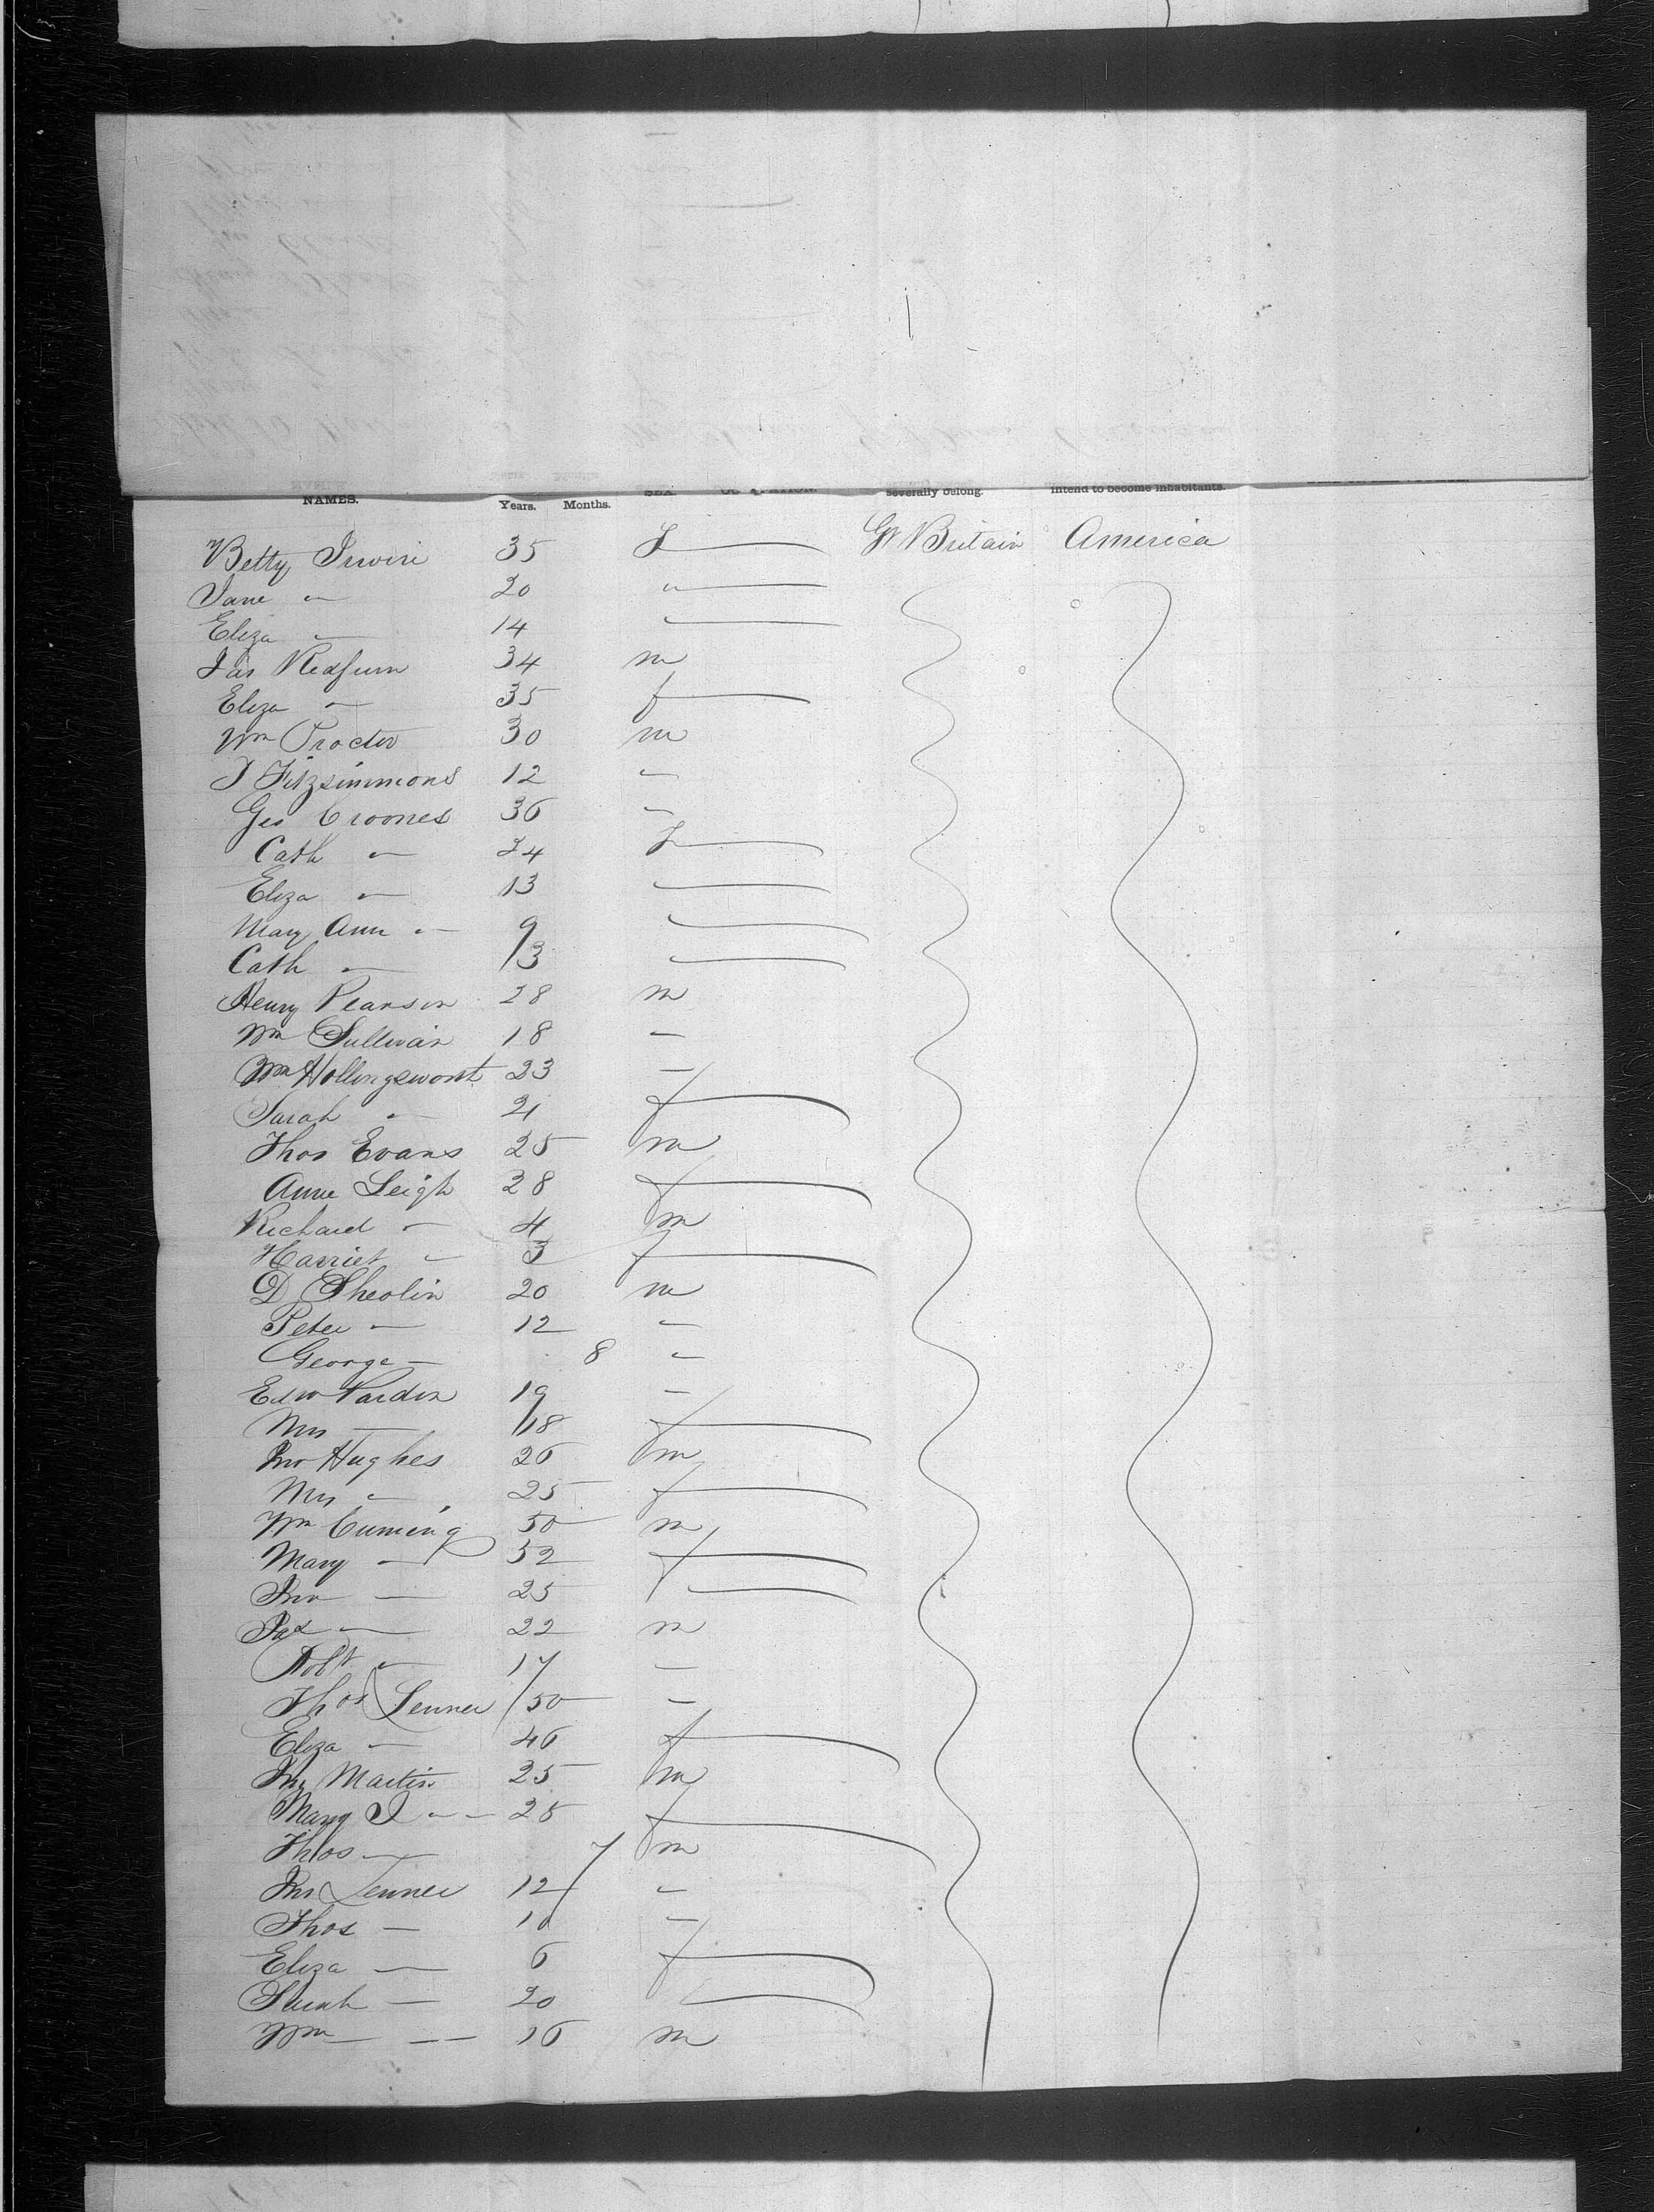 NAMES. Years. Months. SEX. severally belong. intend to become inhabitants.
Betty Irwin 35 f Gt Britain America
Jane " 20 "
Eliza " 14 "
Jas Redfurn 34 m
Eliza " 35 f
Wm Procter 30 m
J Fitzsimmons 12 "
Geo Croones 36 "
Cath " 24 f
Eliza " 13 "
Mary Ann " 9 "
Cath " 3 "
Henry Pearson 28 m
Wm Sullivan 18 "
Wm Hollingsworst 23 "
Sarah " 21 f
Thos Evans 25 m
Anne Leigh 28 f
Richard " 4 m
Harriet " 3 f
D Sheolin 20 m
Peter " 12 "
George " 8 "
Edw Pardon 19 "
Mrs — 18 f
Jno Hughes 26 m
Mrs " 25 f
Wm Cuming 50 m
Mary " 52 f
Jno — 25 "
Jas " 22 m
Robt " 17 —
Thos Lenner 50 —
Eliza " 46 f
Jno Martin 25 m
Mary J " — 25 f
Thos — 7 m
Jno Lenner 12 "
Thos — 10 —
Eliza — 6 f
Sarah — 20
Wm — — 16 m